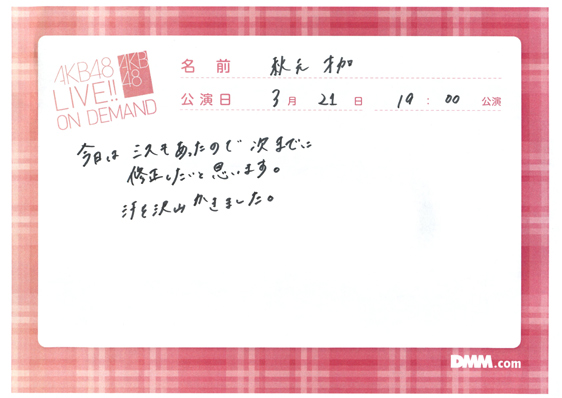 AKB48
LIVE!!
ON DEMAND
AKB
48
名前 秋元才加
公演日 3月21日 19:00 公演
今日は ミスもあったので 次までに
修正したいと思います。
汗を沢山かきました。
DMM.com